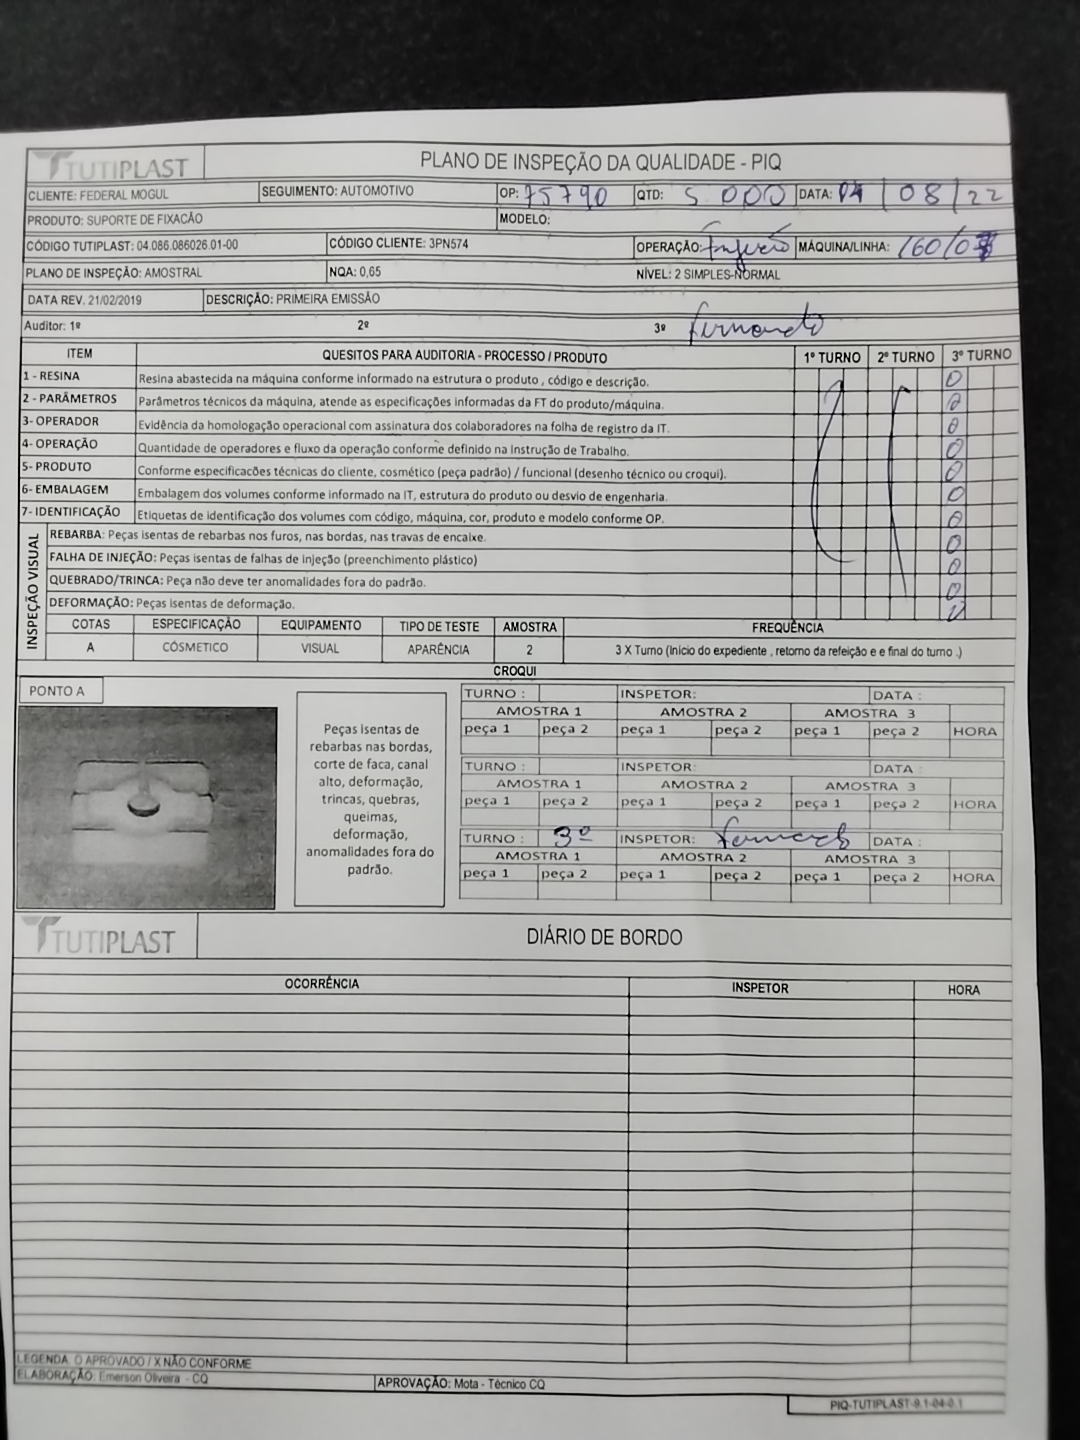 TUTIPLAST PLANO DE INSPEÇÃO DA QUALIDADE - PIQ
CLIENTE: FEDERAL MOGUL SEGUIMENTO: AUTOMOTIVO OP: 75790 QTD: 5.000 DATA: 04/08/22
PRODUTO: SUPORTE DE FIXACÃO MODELO:
CÓDIGO TUTIPLAST: 04.086.086026.01-00 CÓDIGO CLIENTE: 3PN574 OPERAÇÃO: Injeção MÁQUINA/LINHA: 160/
PLANO DE INSPEÇÃO: AMOSTRAL NQA: 0,65 NÍVEL: 2 SIMPLES-NORMAL
DATA REV. 21/02/2019 DESCRIÇÃO: PRIMEIRA EMISSÃO
Auditor: 1º 2º 3º Fernando
ITEM QUESITOS PARA AUDITORIA - PROCESSO / PRODUTO 1º TURNO 2º TURNO 3º TURNO
1 - RESINA Resina abastecida na máquina conforme informado na estrutura o produto , código e descrição. O
2 - PARÂMETROS Parâmetros técnicos da máquina, atende as especificações informadas da FT do produto/máquina. O
3- OPERADOR Evidência da homologação operacional com assinatura dos colaboradores na folha de registro da IT. O
4- OPERAÇÃO Quantidade de operadores e fluxo da operação conforme definido na Instrução de Trabalho. O
5- PRODUTO Conforme especificacões técnicas do cliente, cosmético (peça padrão) / funcional (desenho técnico ou croqui). O
6- EMBALAGEM Embalagem dos volumes conforme informado na IT, estrutura do produto ou desvio de engenharia. O
7- IDENTIFICAÇÃO Etiquetas de identificação dos volumes com código, máquina, cor, produto e modelo conforme OP. O
INSPEÇÃO VISUAL
REBARBA: Peças isentas de rebarbas nos furos, nas bordas, nas travas de encaixe. O
FALHA DE INJEÇÃO: Peças isentas de falhas de injeção (preenchimento plástico) O
QUEBRADO/TRINCA: Peça não deve ter anomalidades fora do padrão. O
DEFORMAÇÃO: Peças isentas de deformação.
COTAS ESPECIFICAÇÃO EQUIPAMENTO TIPO DE TESTE AMOSTRA FREQUÊNCIA
A CÓSMETICO VISUAL APARÊNCIA 2 3 X Turno (Inicio do expediente , retorno da refeição e e final do turno .)
CROQUI
PONTO A
Peças isentas de
rebarbas nas bordas,
corte de faca, canal
alto, deformação,
trincas, quebras,
queimas,
deformação,
anomalidades fora do
padrão.
TURNO : INSPETOR: DATA :
AMOSTRA 1 AMOSTRA 2 AMOSTRA 3
peça 1 peça 2 peça 1 peça 2 peça 1 peça 2 HORA
TURNO : INSPETOR: DATA :
AMOSTRA 1 AMOSTRA 2 AMOSTRA 3
peça 1 peça 2 peça 1 peça 2 peça 1 peça 2 HORA
TURNO : 3º INSPETOR: DATA :
AMOSTRA 1 AMOSTRA 2 AMOSTRA 3
peça 1 peça 2 peça 1 peça 2 peça 1 peça 2 HORA
TUTIPLAST DIÁRIO DE BORDO
OCORRÊNCIA INSPETOR HORA
LEGENDA O APROVADO / X NÃO CONFORME
ELABORAÇÃO: Emerson Oliveira - CQ APROVAÇÃO: Mota - Técnico CQ
PIQ-TUTIPLAST-9.1-04-0.1